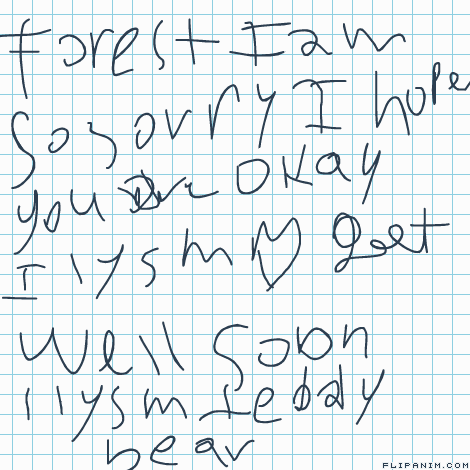 forest I am
So sorry I hope
you are okay
I lysm ♡ get
Well soon
ilysm teddy
bear
FLIPANIM.COM